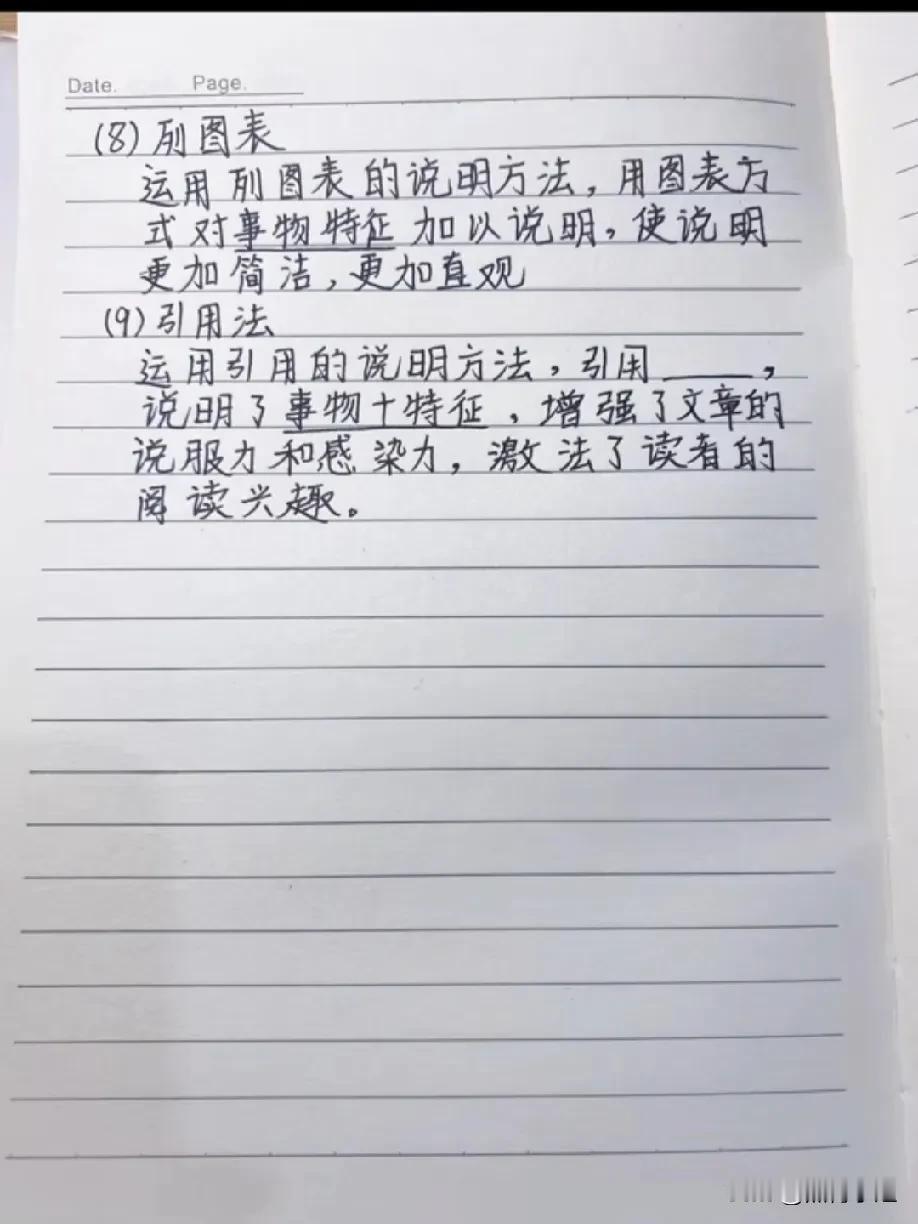 Date. Page.
(8) 列图表
运用列图表的说明方法，用图表方
式对事物特征加以说明，使说明
更加简洁，更加直观
(9) 引用法
运用引用的说明方法，引用____，
说明了事物十特征，增强了文章的
说服力和感染力，激法了读者的
阅读兴趣。